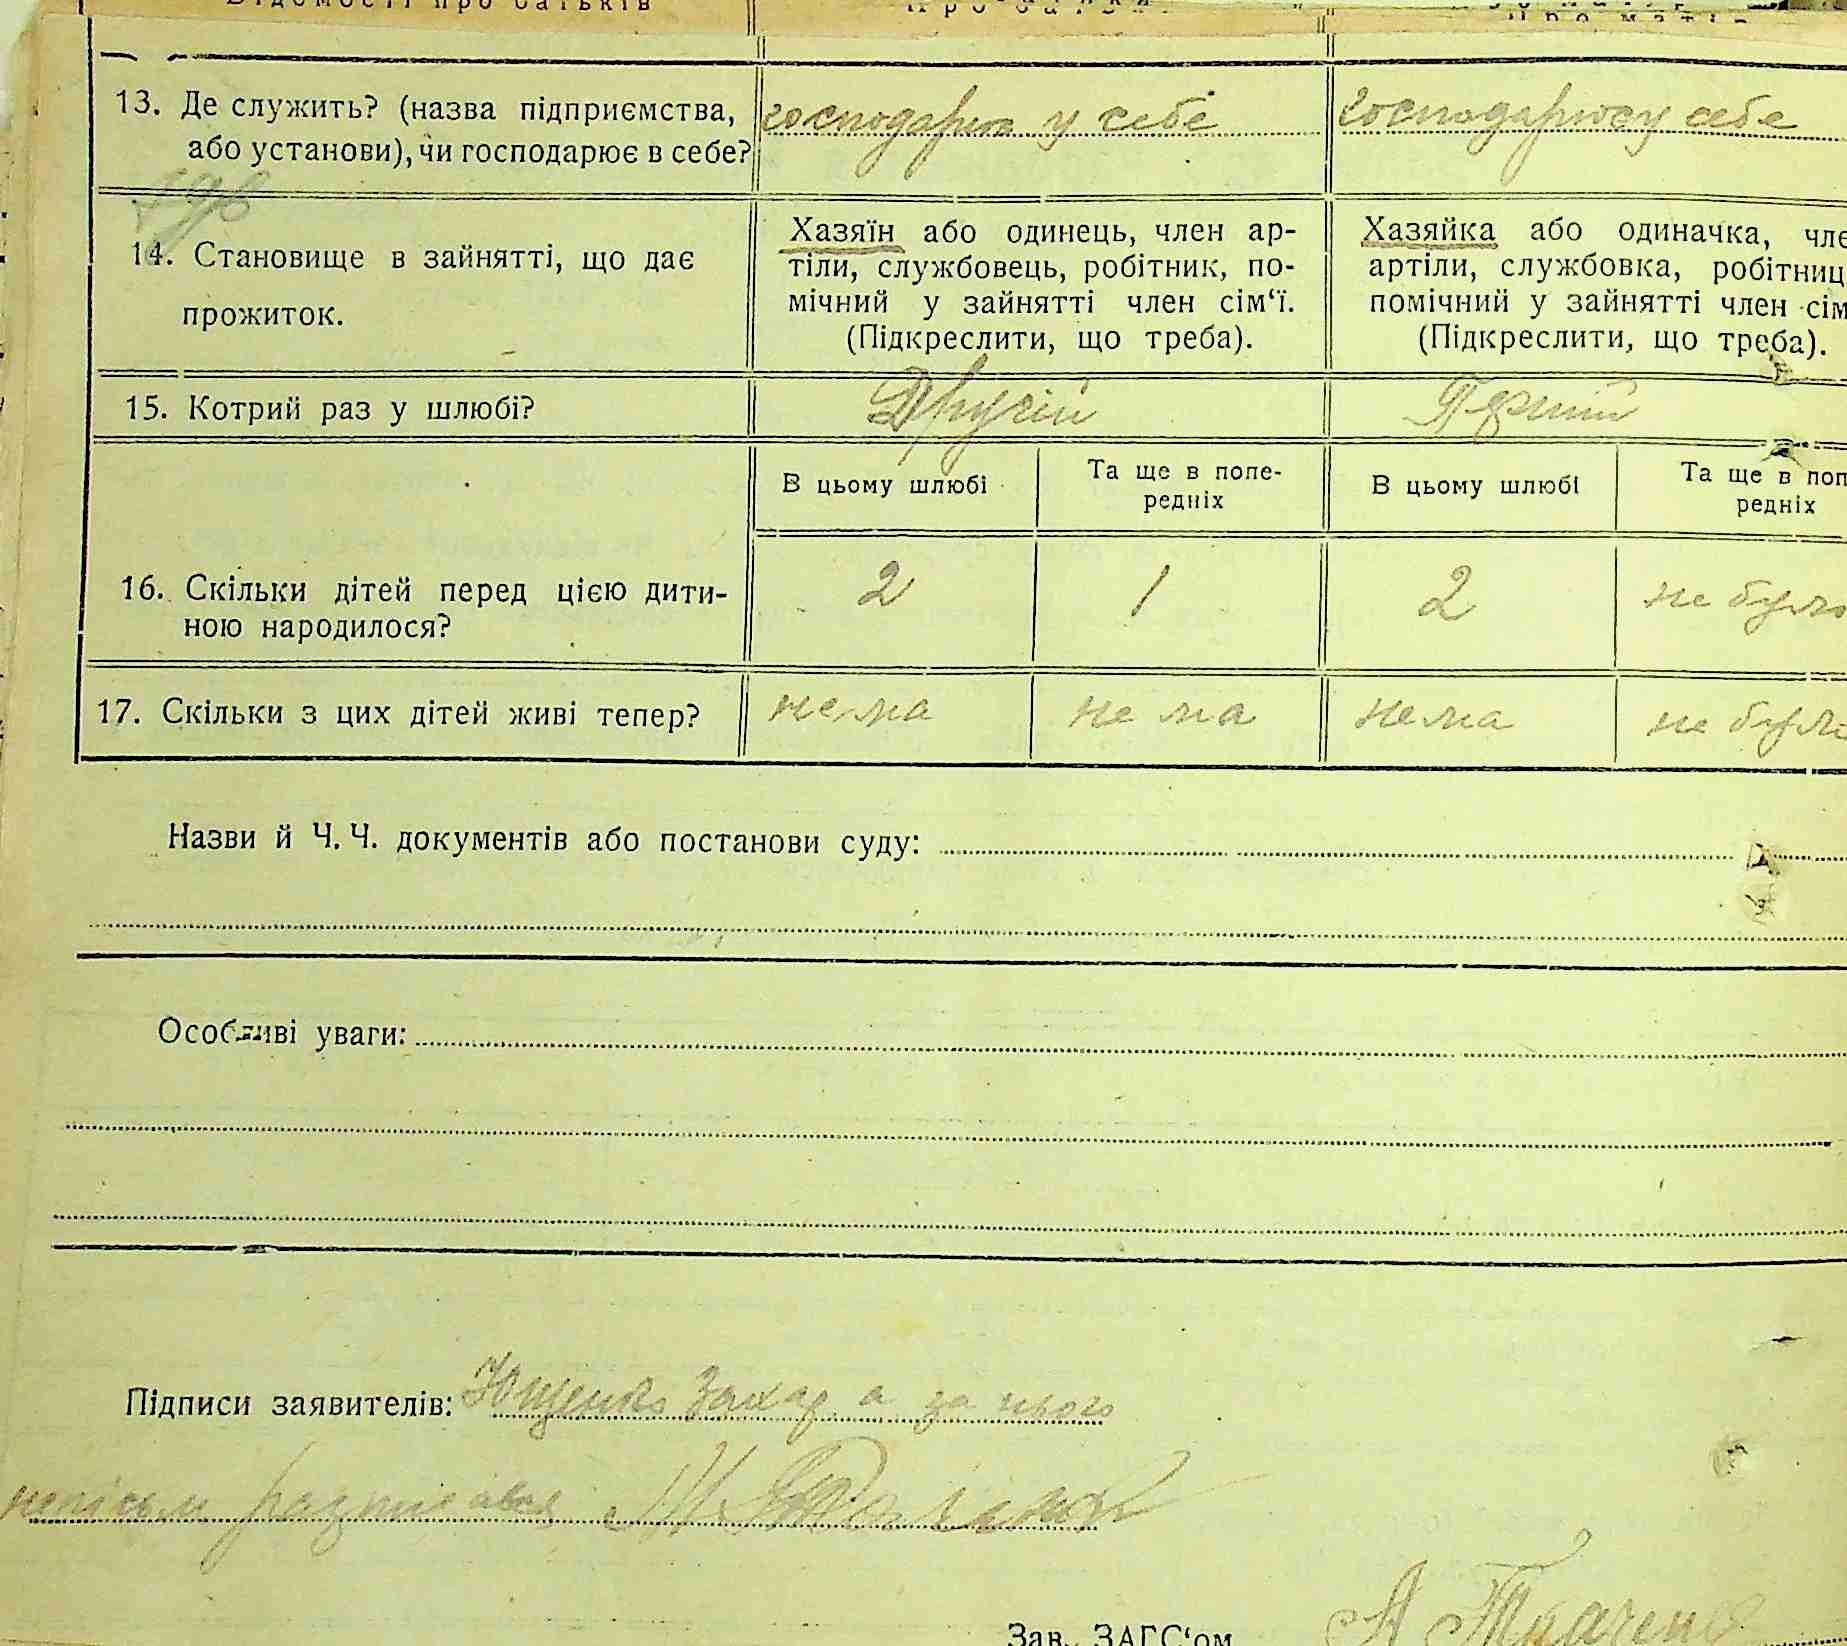 Відомості про батьків
Про батька
Про матір
13. Де служить? (назва підприємства,
або установи), чи господарює в себе?
господарит у себе
господарюєу себе
14. Становище в зайнятті, що дає
прожиток.
Хазяїн або одинець, член ар-
тіли, службовець, робітник, по-
мічний у зайнятті член сім‘ї.
(Підкреслити, що треба).
Хазяйка або одиначка, чле
артіли, службовка, робітниц
помічний у зайнятті член сім
(Підкреслити, що треба).
15. Котрий раз у шлюбі?
Другій
Перший
В цьому шлюбі
Та ще в попе-
редніх
В цьому шлюбі
Та ще в поп
редніх
16. Скільки дітей перед цією дити-
ною народилося?
2
1
2
не було
17. Скільки з цих дітей живі тепер?
нема
не ма
нема
не було
Назви й Ч. Ч. документів або постанови суду:
Особливі уваги:
Підписи заявителів: Ющенко Захар а за нього
Зав. ЗАГС‘ом А Ткаченко